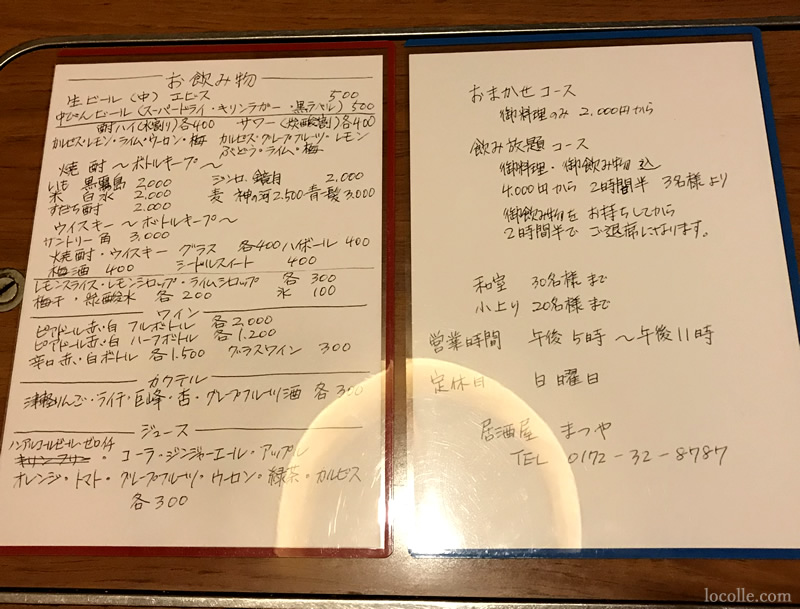 お飲み物
生ビール(中) ヱビス 500
中びんビール(スーパードライ・キリンラガー・黒ラベル) 500
酎ハイ(水割り)各400 サワー(炭酸割)各400
カルピス・レモン・ライム・ウーロン・梅 カルピス・グレープフルーツ・レモン
ぶどう・ライム・梅
焼酎 〜ボトルキープ〜
いも 黒霧島 2,000 ジンロ、鏡月 2,000
米 白水 2,000 麦 神の河 2,500 青一髪 3,000
すだち酎 2,000
ウイスキー 〜ボトルキープ〜
サントリー角 3,000
焼酎・ウイスキー グラス 各400 ハイボール 400
梅酒 400 シードルスイート 400
レモンスライス・レモンシロップ・ライムシロップ 各300
梅干・炭酸水 各200 氷 100
ワイン
ピアドール赤・白 フルボトル 各2,000
ピアドール赤・白 ハーフボトル 各1,200
辛口 赤・白ボトル 各1,500 グラスワイン 300
カクテル
津軽りんご・ライチ・巨峰・杏・グレープフルーツ酒 各350
ジュース
ノンアルコールビール・ゼロイチ
キリンフリー・コーラ・ジンジャーエール・アップル
オレンジ・トマト・グレープフルーツ・ウーロン・緑茶・カルピス
各300
おまかせコース
御料理のみ 2,000円から
飲み放題コース
御料理・御飲み物込
4,000円から 2時間半 3名様より
御飲み物を お持ちしてから
2時間半で ご退席になります。
和室 30名様まで
小上り 20名様まで
営業時間 午後5時〜午後11時
定休日 日曜日
居酒屋 まつや
TEL 0172-32-8787
locolle.com